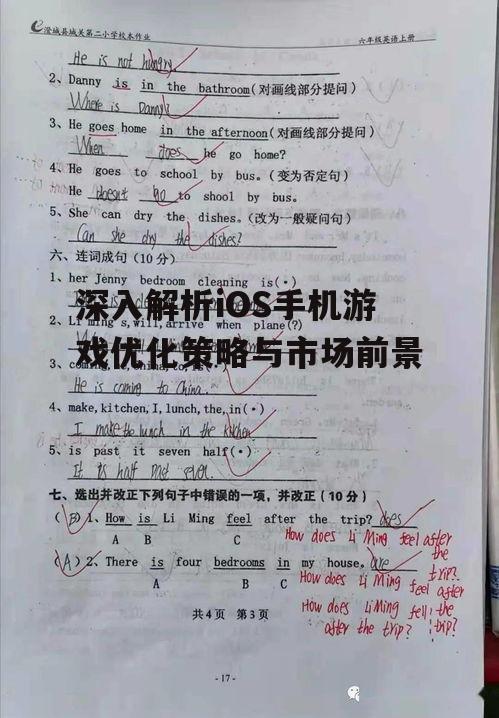 澄城县城关第二小学校本作业 六年级英语上册
He is not hungry
2、Danny is in the bathroom(对画线部分提问)
Where is Danny?
3、He goes home in the afternoon(对画线部分提问)
When does he go home?
4、He goes to school by bus。(变为否定句)
He doesn't go to shool by bus.
5、She can dry the dishes。(改为一般疑问句)
Can she dry the dishes?
六、连词成句(10分)
1、her Jenny bedroom cleaning is(·)
深入解析iOS手机游
2、Li ming's,will,arrive when plane(?)
戏优化策略与市场前景
He is coming to China.
4、make,kitchen,I,lunch,the,in(·)
I make the lunch in the kitchen
5、is past it seven half(·)
It is half past seven.
七、选出并改正下列句子中错误的一项,并改正(10分)
(B)1、How is Li Ming feel after the trip? does
A B C
How does Li Ming feel after the trip?
(A)2、There is four bedrooms in my house。are
A B C
How does Li Ming feel after the trip?
How does LiMing fell
after the trip?
共4页 第3页
-17-